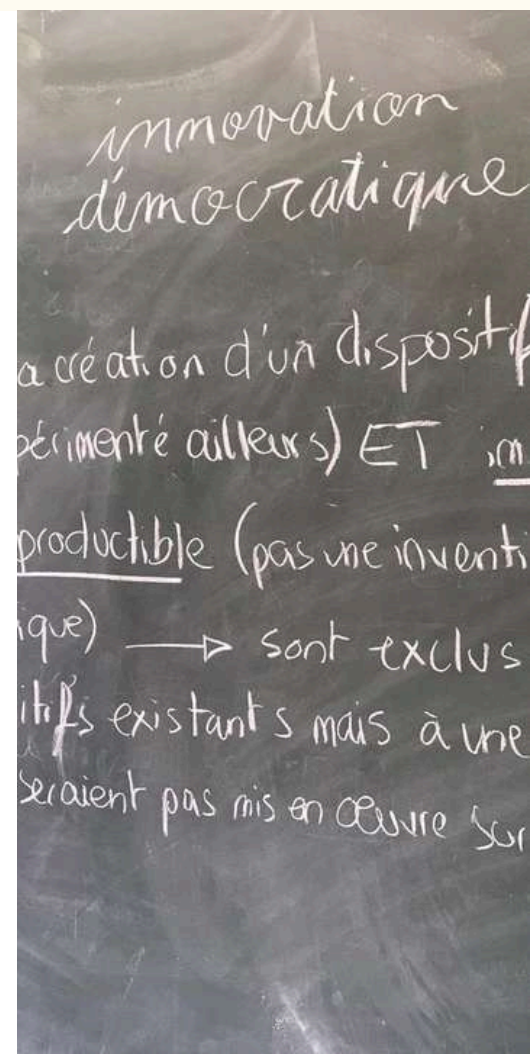 innovation
démocratique
a création d'un dispositif
périmenté ailleurs) ET
productible (pas une inventi
ique) → sont exclus
itifs existants mais à une
seraient pas mis en œuvre sur